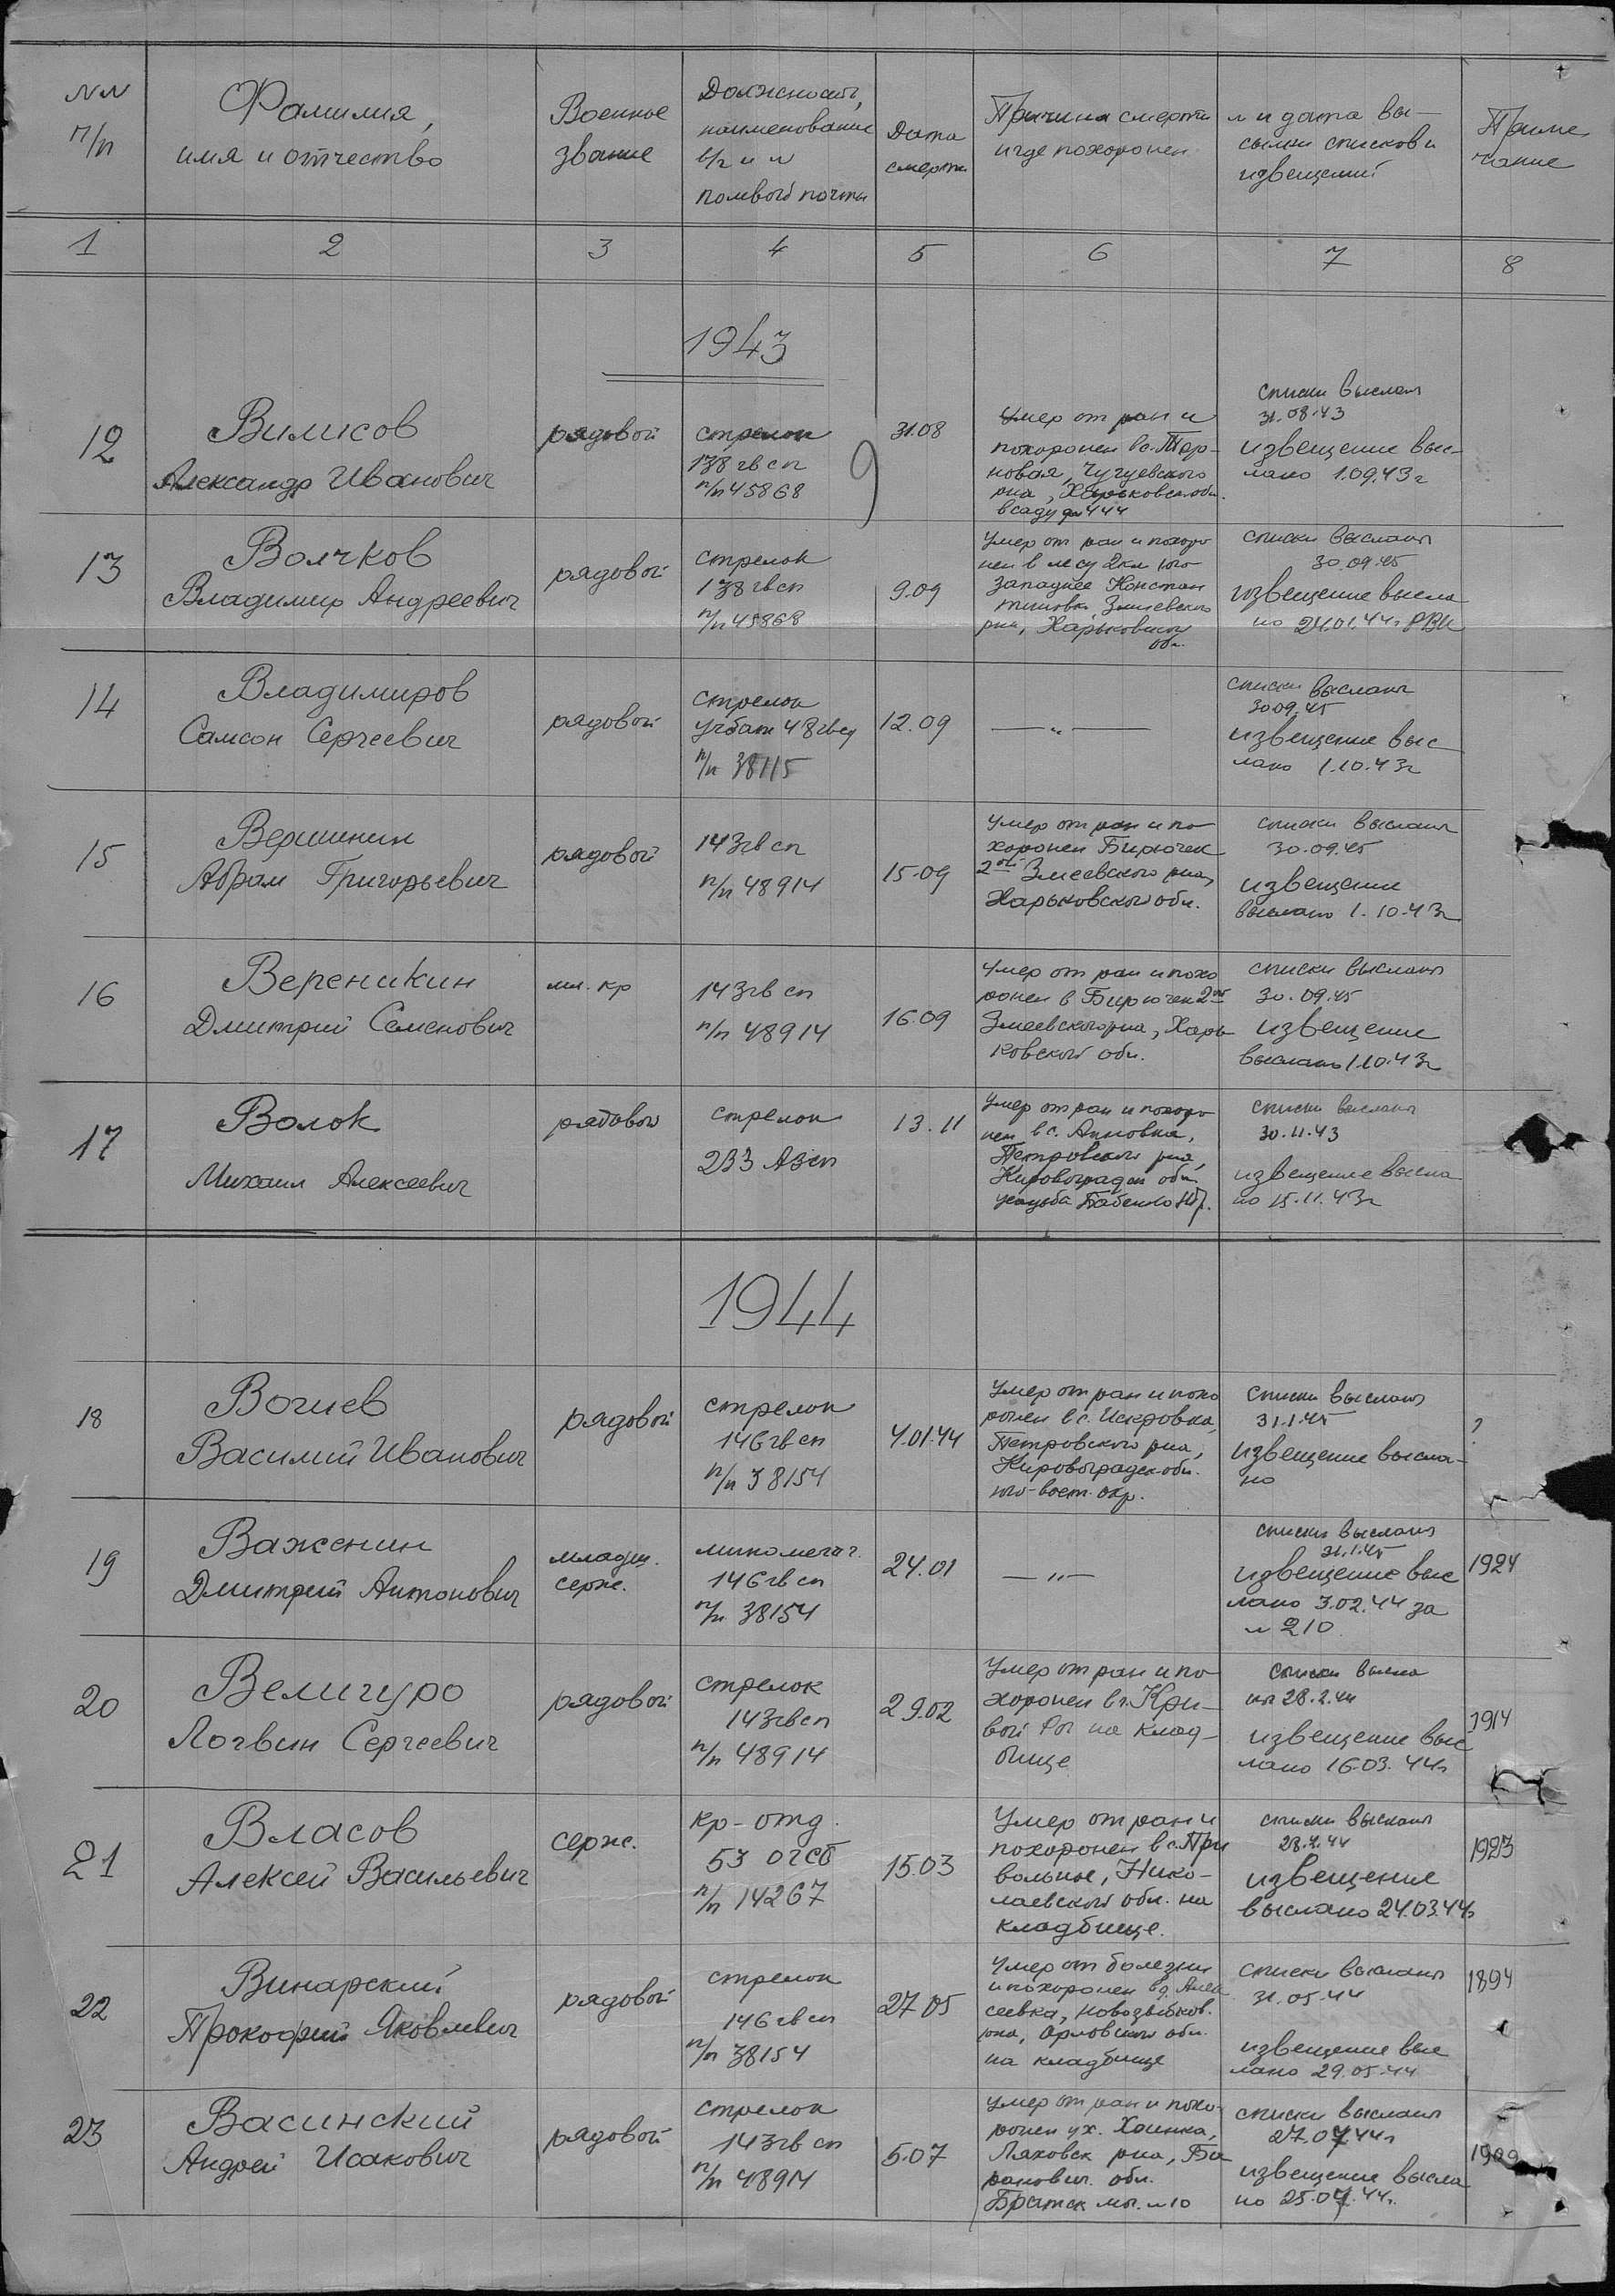 NN
п/п
Фамилия,
имя и отчество
Военное
звание
Должность,
наименование
в/ч и N
полевой почты
Дата
смерти
Причина смерти
и где похоронен
N и дата вы-
сылки списков и
извещений
Приме
чание
1 2 3 4 5 6 7 8
1943
12
Вилисов
Александр Иванович
рядовой
стрелок
138 гв сп
п/п 45868
31.08
Умер от ран и
похоронен в с. Тер-
новая, Чугуевского
рна, Харьковск. обл.
в саду
списки высланы
31.08.43
извещение выс-
лано 1.09.43г
13
Волчков
Владимир Андреевич
рядовой
стрелок
138 гв сп
п/п 45868
9.09
Умер от ран и похоро
нен в лесу 2км юго
западнее Констан
тиновки, Змиевского
рна, Харьковской
обл.
списки высланы
30.09.45
извещение высла
но 24.01.44г РВК
14
Владимиров
Самсон Сергеевич
рядовой
стрелок
учбат 48 гвсд
п/п 38115
12.09
— " —
списки высланы
30.09.45
извещение выс
лано 1.10.43г
15
Вершинин
Абрам Григорьевич
рядовой
143 гв сп
п/п 48914
15.09
Умер от ран и по
хоронен Бирючек
2ой Змеевского рна,
Харьковской обл.
списки высланы
30.09.45
извещение
выслано 1.10.43г
16
Вереникин
Дмитрий Семенович
мл. кр
143 гв сп
п/п 48914
16.09
Умер от ран и похо
ронен в Бирючек 2ой
Змеевского рна, Харь
ковской обл.
списки высланы
30.09.45
извещение
выслано 1.10.43г
17
Волок
Михаил Алексеевич
рядовой
стрелок
233 Азсп
13.11
Умер от ран и похоро
нен в с. Анновка,
Петровского рна,
Кировоград. обл.
усадьба Бабенко
списки высланы
30.11.43
извещение высла
но 15.11.43г
1944
18
Вогиев
Василий Иванович
рядовой
стрелок
146 гв сп
п/п 38154
4.01.44
Умер от ран и похо
ронен в с. Искровка,
Петровского рна,
Кировоградск. обл.
юго-вост. окр.
списки высланы
31.1.45
извещение высла-
но
?
19
Важенин
Дмитрий Антонович
младш.
серж.
минометч.
146 гв сп
п/п 38154
24.01
— " —
списки высланы
31.1.45
извещение выс
лано 3.02.44 за
N 210
1924
20
Величуро
Логвин Сергеевич
рядовой
стрелок
143 гв сп
п/п 48914
29.02
Умер от ран и по
хоронен в г. Кри-
вой Рог на клад-
бище
списки высла
ны 28.2.44
извещение выс
лано 16.03.44г
1914
21
Власов
Алексей Васильевич
серж.
кр-отд.
53 огсб
п/п 14267
15.03
Умер от ран и
похоронен в с. При
вольное, Нико-
лаевской обл. на
кладбище.
списки высланы
извещение
выслано 24.03.44г
1923
22
Винарский
Прокофий Яковлевич
рядовой
стрелок
146 гв сп
п/п 38154
27.05
Умер от болезни
и похоронен в д. Алек
сеевка, Новозыбков.
рна, Орловской обл.
на кладбище
списки высланы
31.05.44
извещение выс
лано 29.05.44
1894
23
Васинский
Андрей Исакович
рядовой
стрелок
143 гв сп
п/п 48914
5.07
Умер от ран и похо-
ронен у х. Хоинка,
Ляховск рна, Ба
рановач. обл.
Братск мог. N10
списки высланы
27.07.44г
извещение высла
но 25.07.44г.
1909